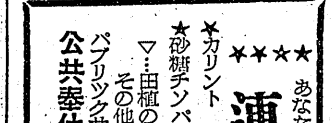 あなた
★★★★
★カリント
★砂糖チソパ
▽…田植の
その他
パブリツクサ
公共奉仕